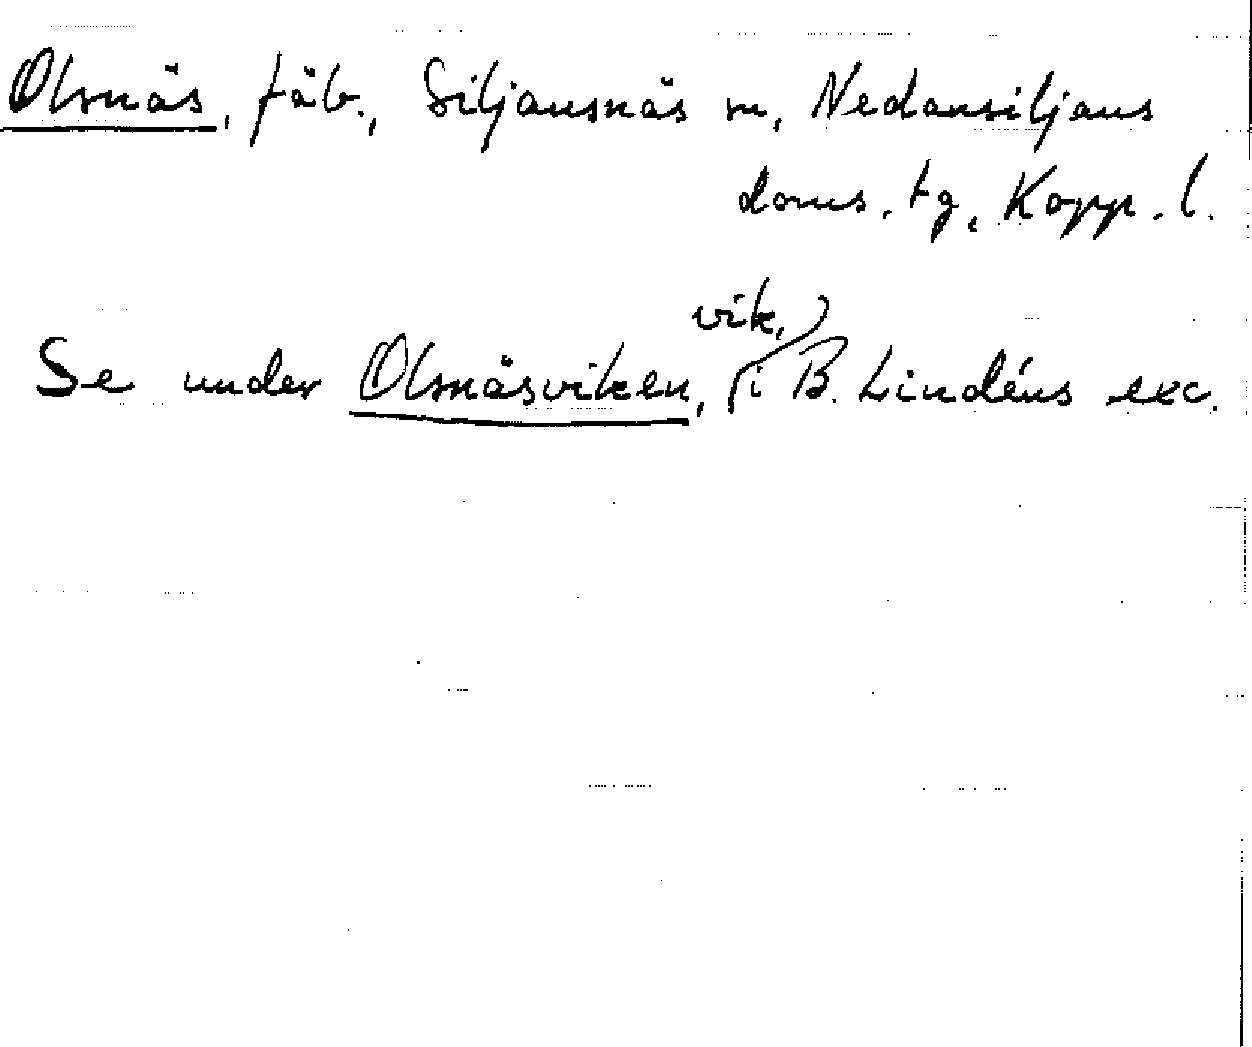 Olsnäs, fäb., Siljansnäs sn, Nedansiljans
doms. tg, Kopp. l.
Se under Olsnäsviken, vik, i B. Lindéns exc.